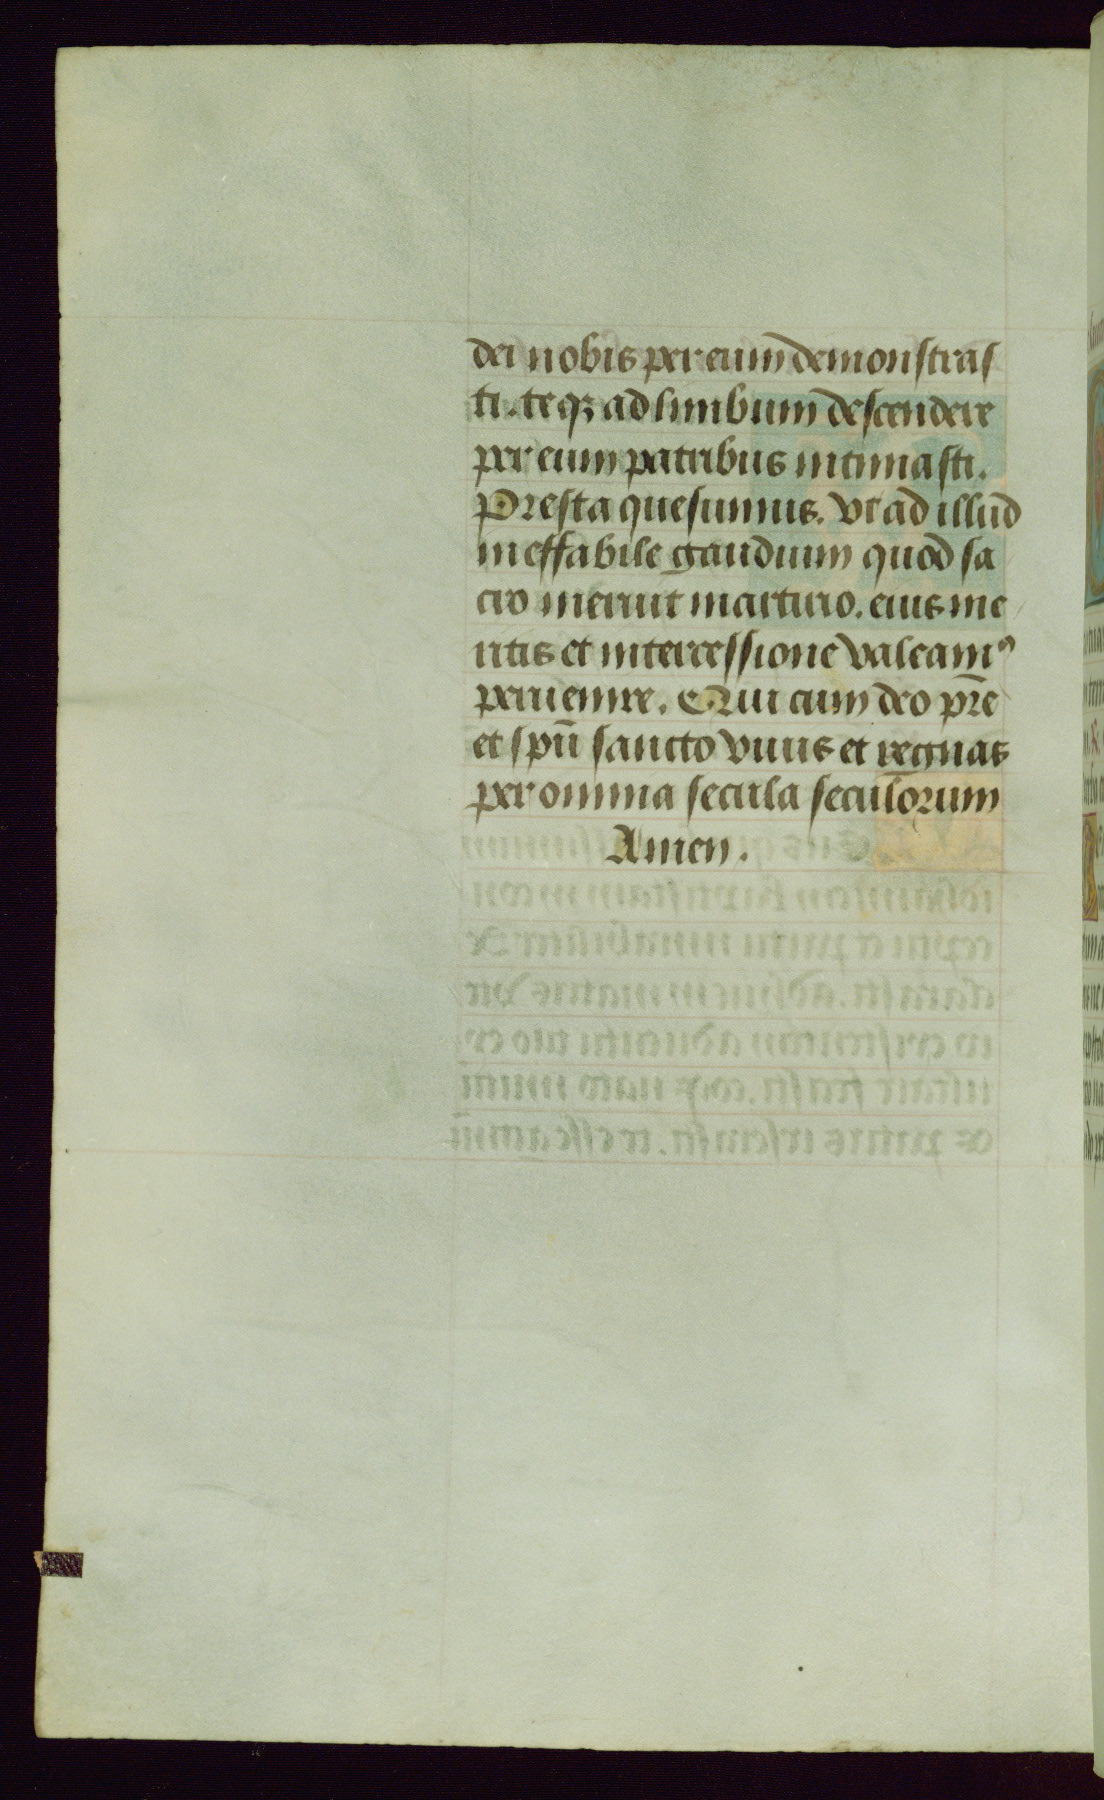 dei nobis per eum demonstras
ti. teqꝫ ad limbum descendere
per eum patribus intimasti.
Presta quesumus. vt ad illud
ineffabile gaudium quod sa
cro meruit martirio. eius me
ritis et intercessione valeamꝰ
peruenire. Qui cum deo pr̄e
et spū sancto viuis et regnas
per omnia secula seculorum
Amen.